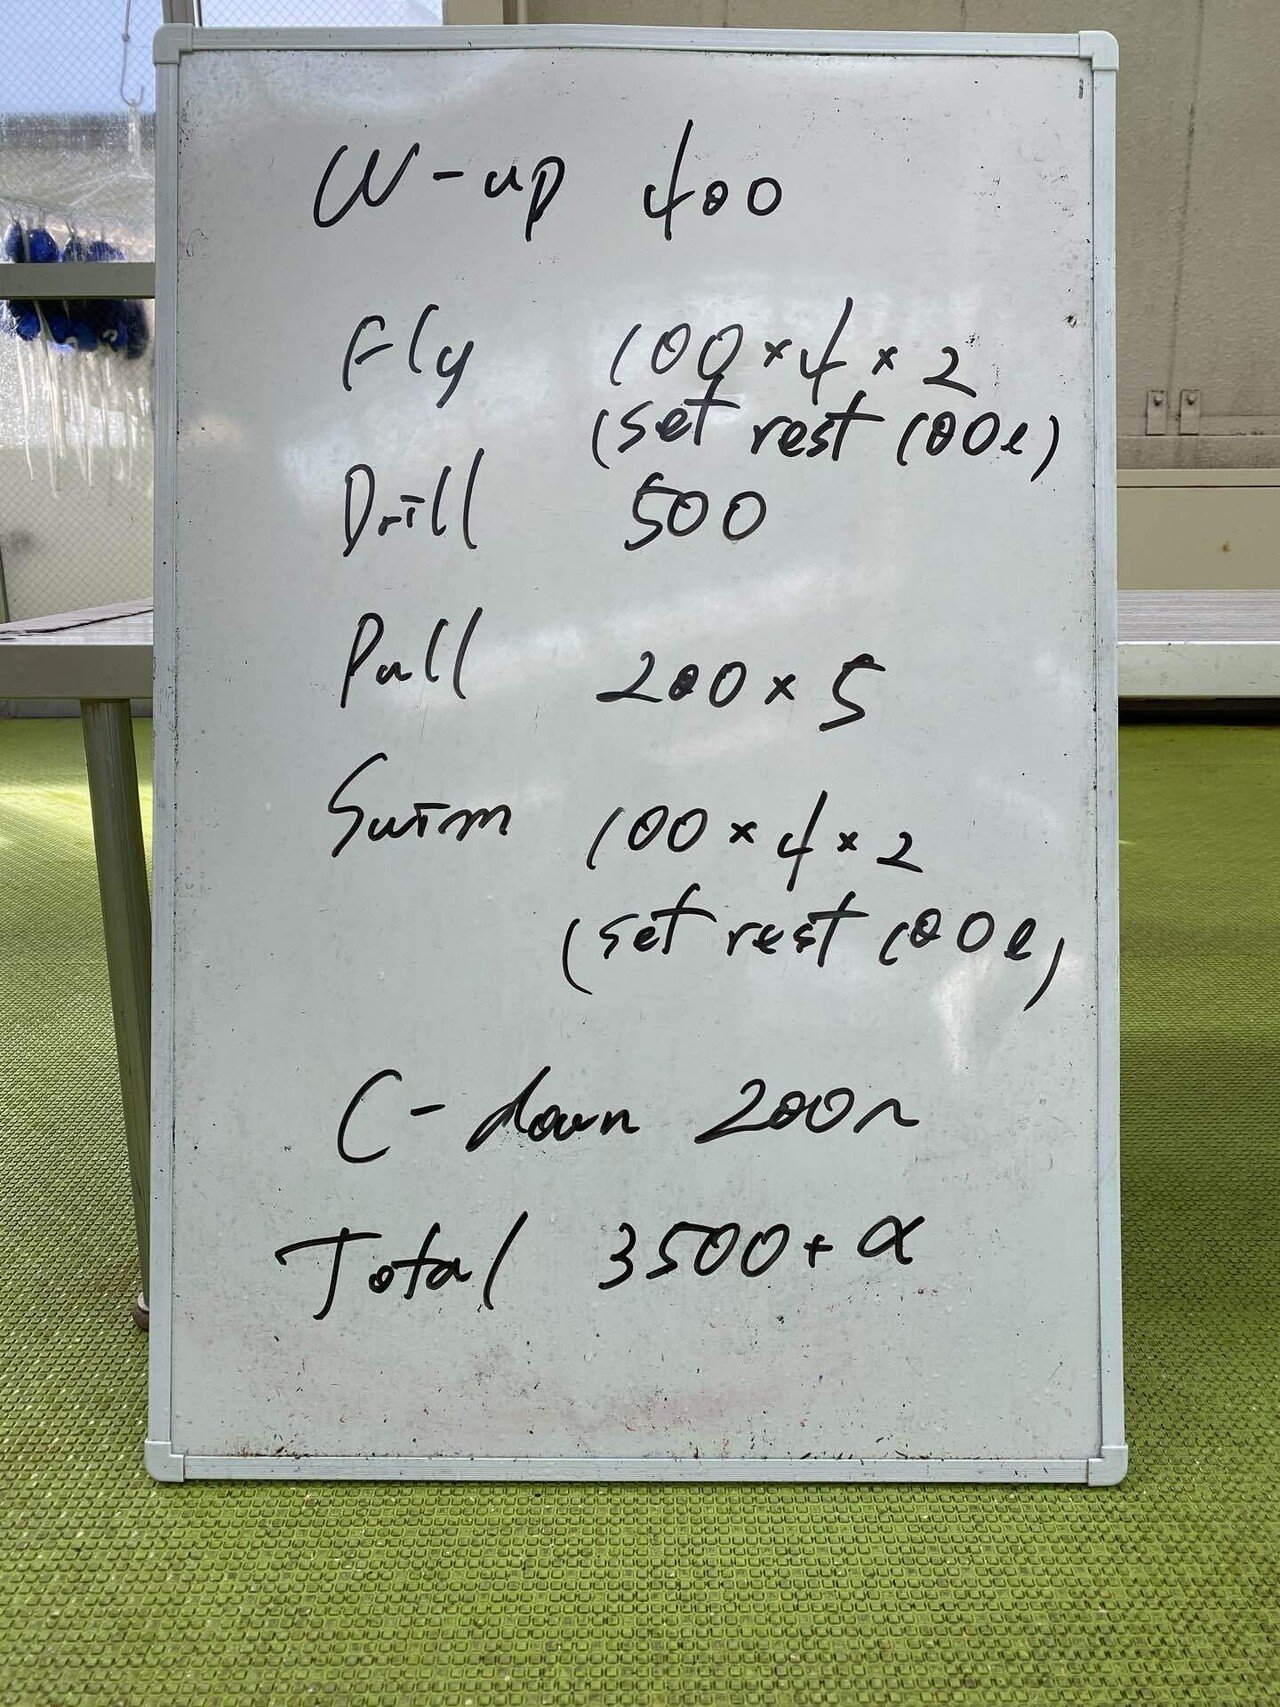 W-up 400
Fly 100×4×2
(set rest 100e)
Drill 500
Pull 200×5
Swim 100×4×2
(set rest 100e)
C-down 200~
Total 3500+α